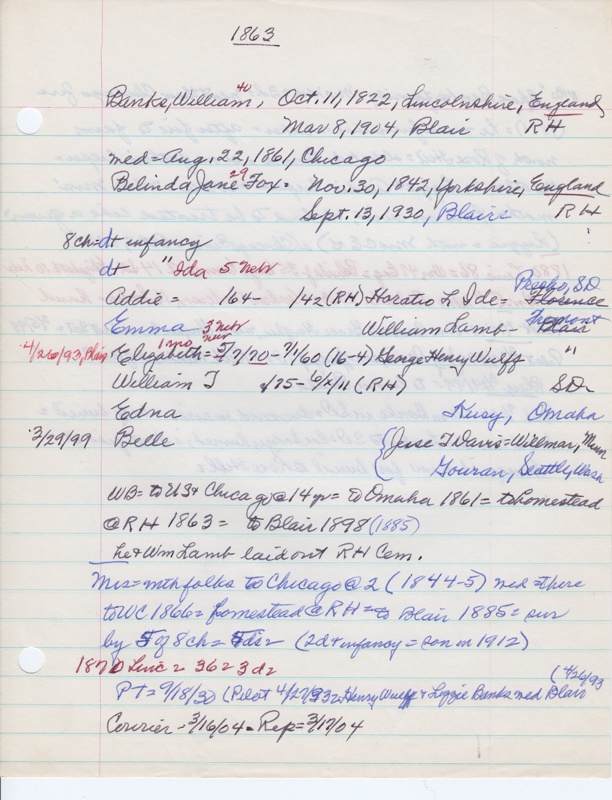 1863
Banks, William, 40 Oct. 11, 1822, Lincolnshire, England
Mar 8, 1904, Blair RH
med = Aug. 22, 1861, Chicago
Belinda Jane 29 Fox - Nov. 30, 1842, Yorkshire, England
Sept. 13, 1930, Blair RH
8ch = d+ infancy
d+ " Ida 5 Nebr
Addie = 164 - 142 (RH) Horatio L Ide = Florence
Emma 3 Nebr William Lamb - Fremont Blair
4/26/93, Blair Elizabeth = 1 mo 5/7/70 - 7/1/60 (16-4) George Henry Wulff "
William T 1/25 - 6/2/11 (RH) SD
Edna Kusy, Omaha
3/29/99 Belle { Jesse T Davis = Willmar, Minn
Gouran, Seattle, Wash
WB = to US & Chicago @ 14 yr = to Omaha 1861 = to homestead
@ RH 1863 = to Blair 1898 (1885)
he & Wm Lamb laid out RH Cem.
Mrs = with folks to Chicago @ 2 (1844-5) med there
to WC 1866 = homestead @ RH = to Blair 1885 = sur
by 5 of 8ch = 5ds = (2d+ infancy = son in 1912)
1870 Linc = 362 = 3d2
PT = 9/18/30 (Pilot 4/27/93 = Henry Wulff & Lizzie Banks med Blair (4/26/93
Courier - 3/16/04 - Rep = 3/17/04